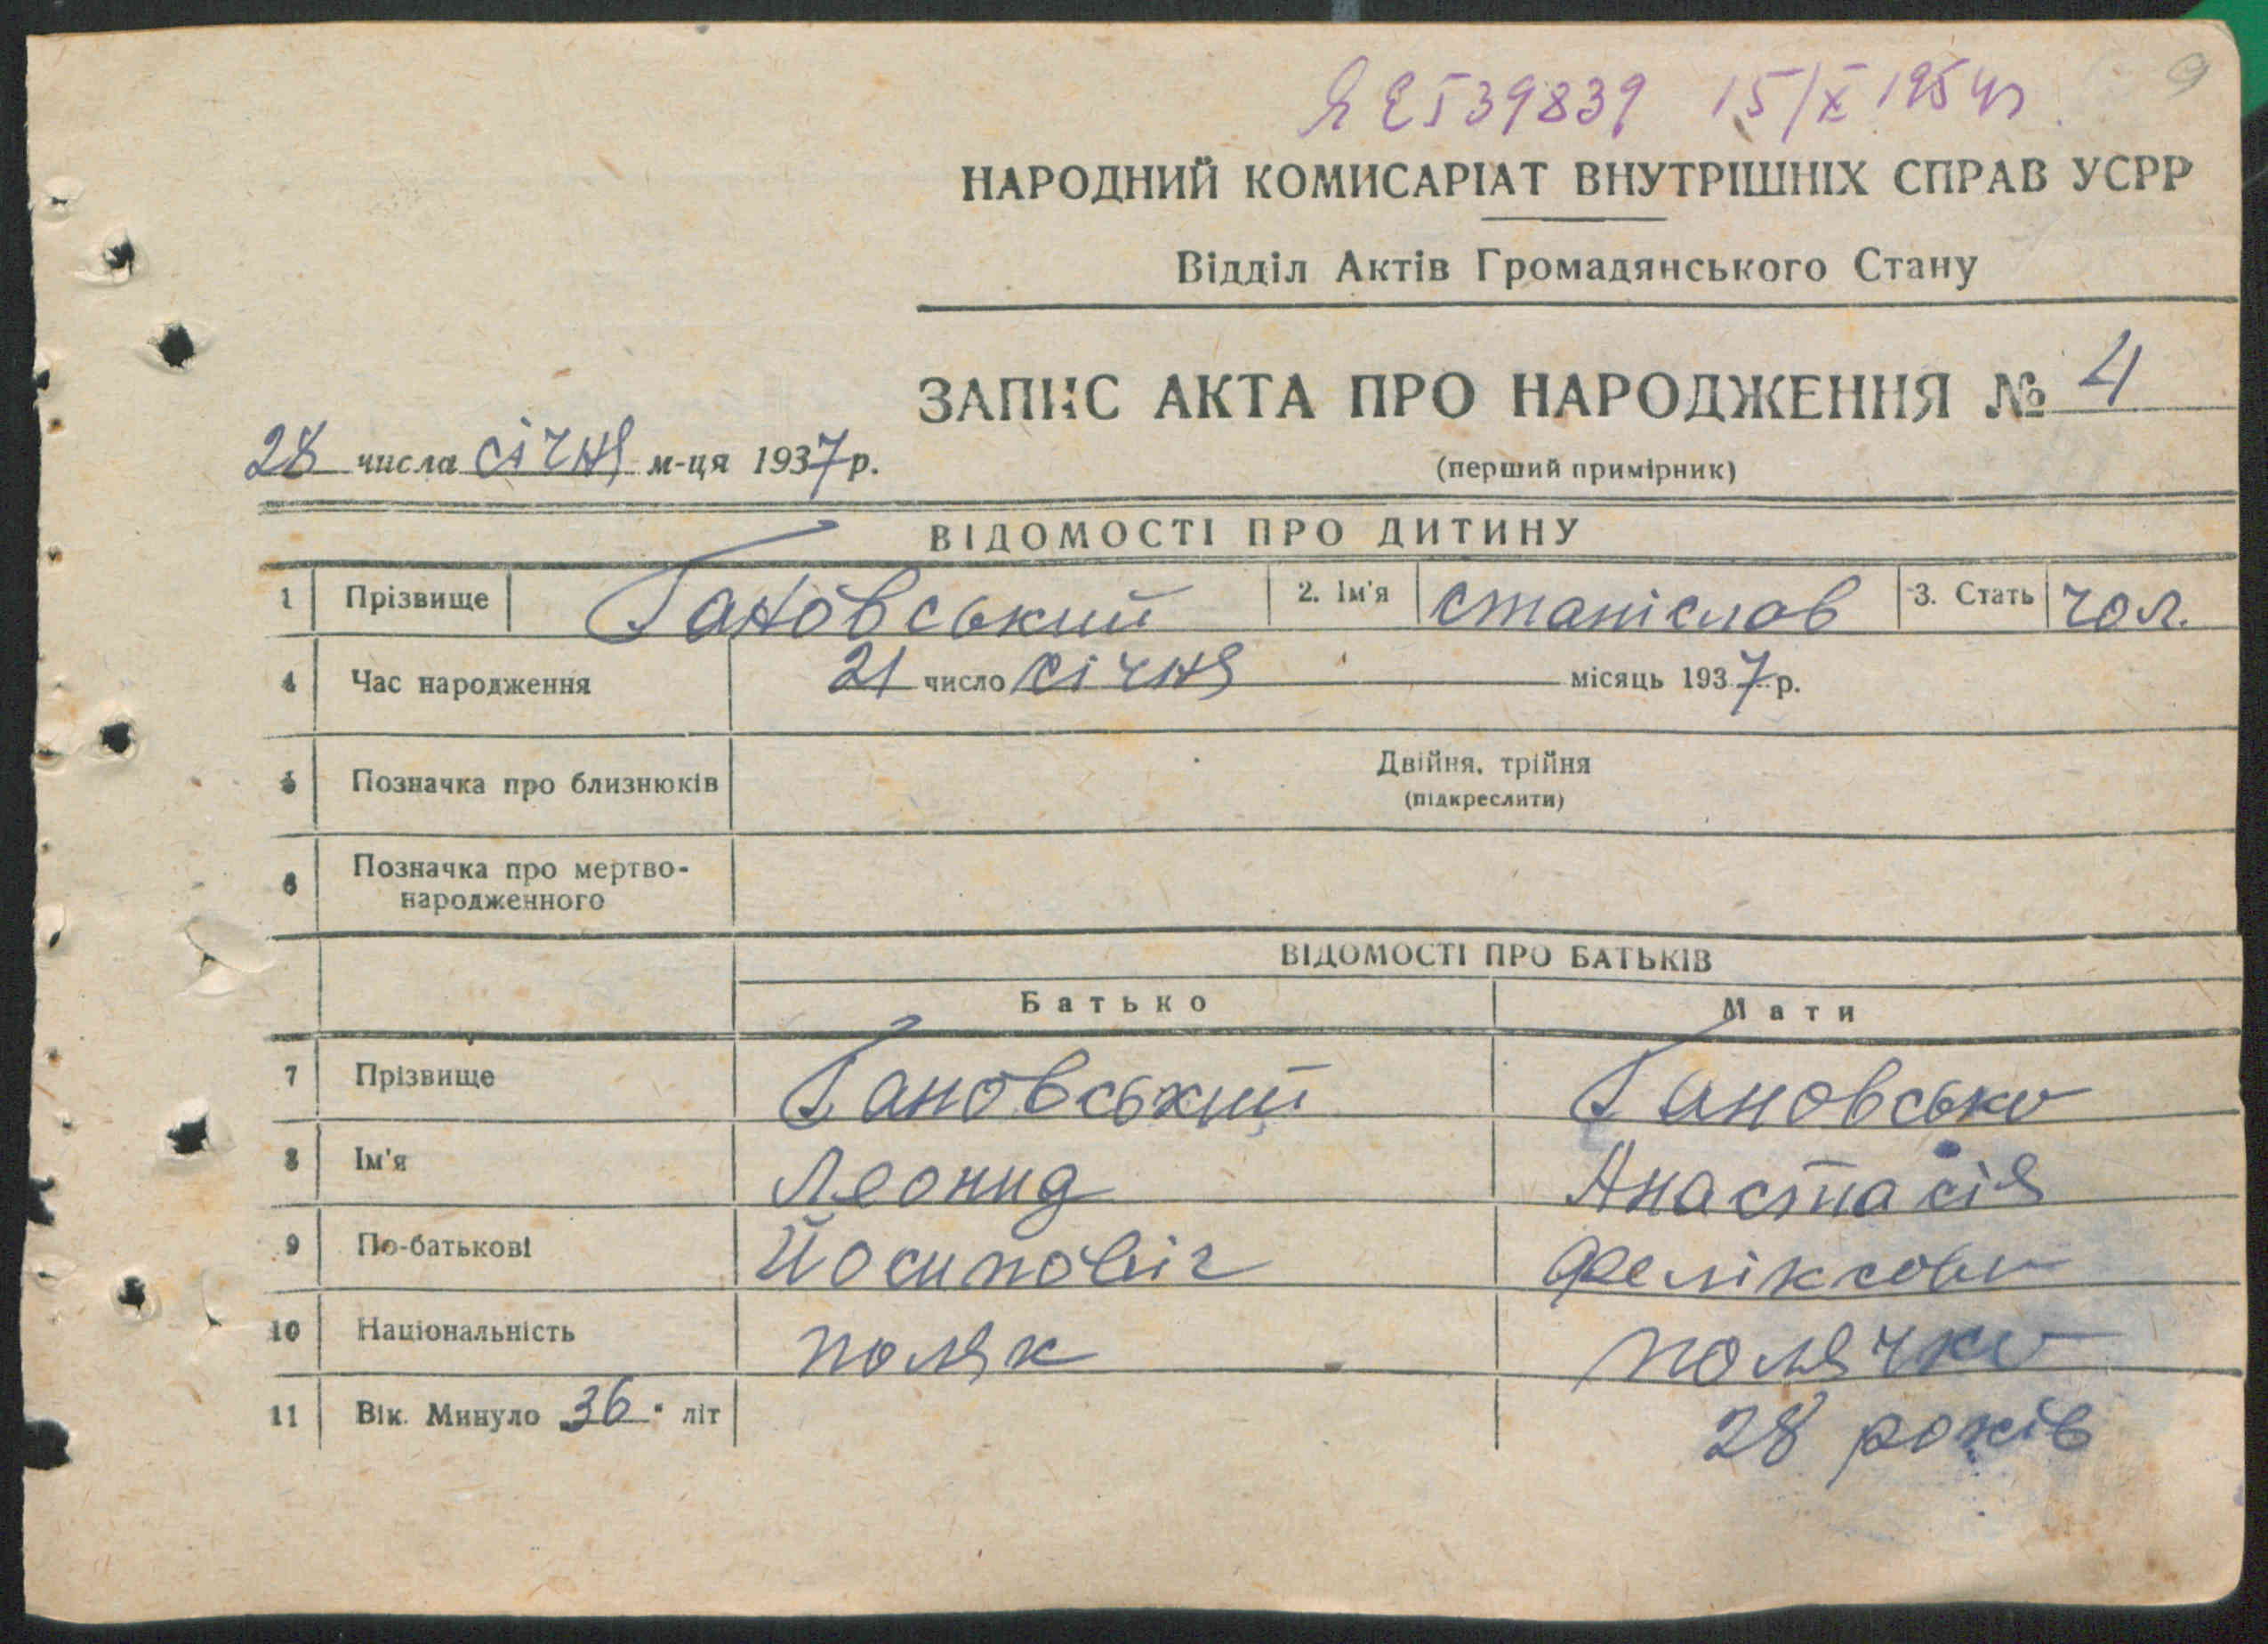 539839 15/X 1954р 9
НАРОДНИЙ КОМИСАРІАТ ВНУТРІШНІХ СПРАВ УСРР
Відділ Актів Громадянського Стану
ЗАПИС АКТА ПРО НАРОДЖЕННЯ № 4
28 числа січня м-ця 1937 р.
(перший примірник)
ВІДОМОСТІ ПРО ДИТИНУ
1 Прізвище Гановський 2. Ім'я Станіслав 3. Стать чол.
4 Час народження 21 число січня місяць 1937 р.
5 Позначка про близнюків Двійня, трійня
(підкреслити)
6 Позначка про мертво-
народженного
ВІДОМОСТІ ПРО БАТЬКІВ
Батько Мати
7 Прізвище Гановський Гановська
8 Ім'я Леонид Анастасія
9 По-батькові Йосиповіч Феліксовн
10 Національність поляк полячка
11 Вік. Минуло 36 літ 28 років